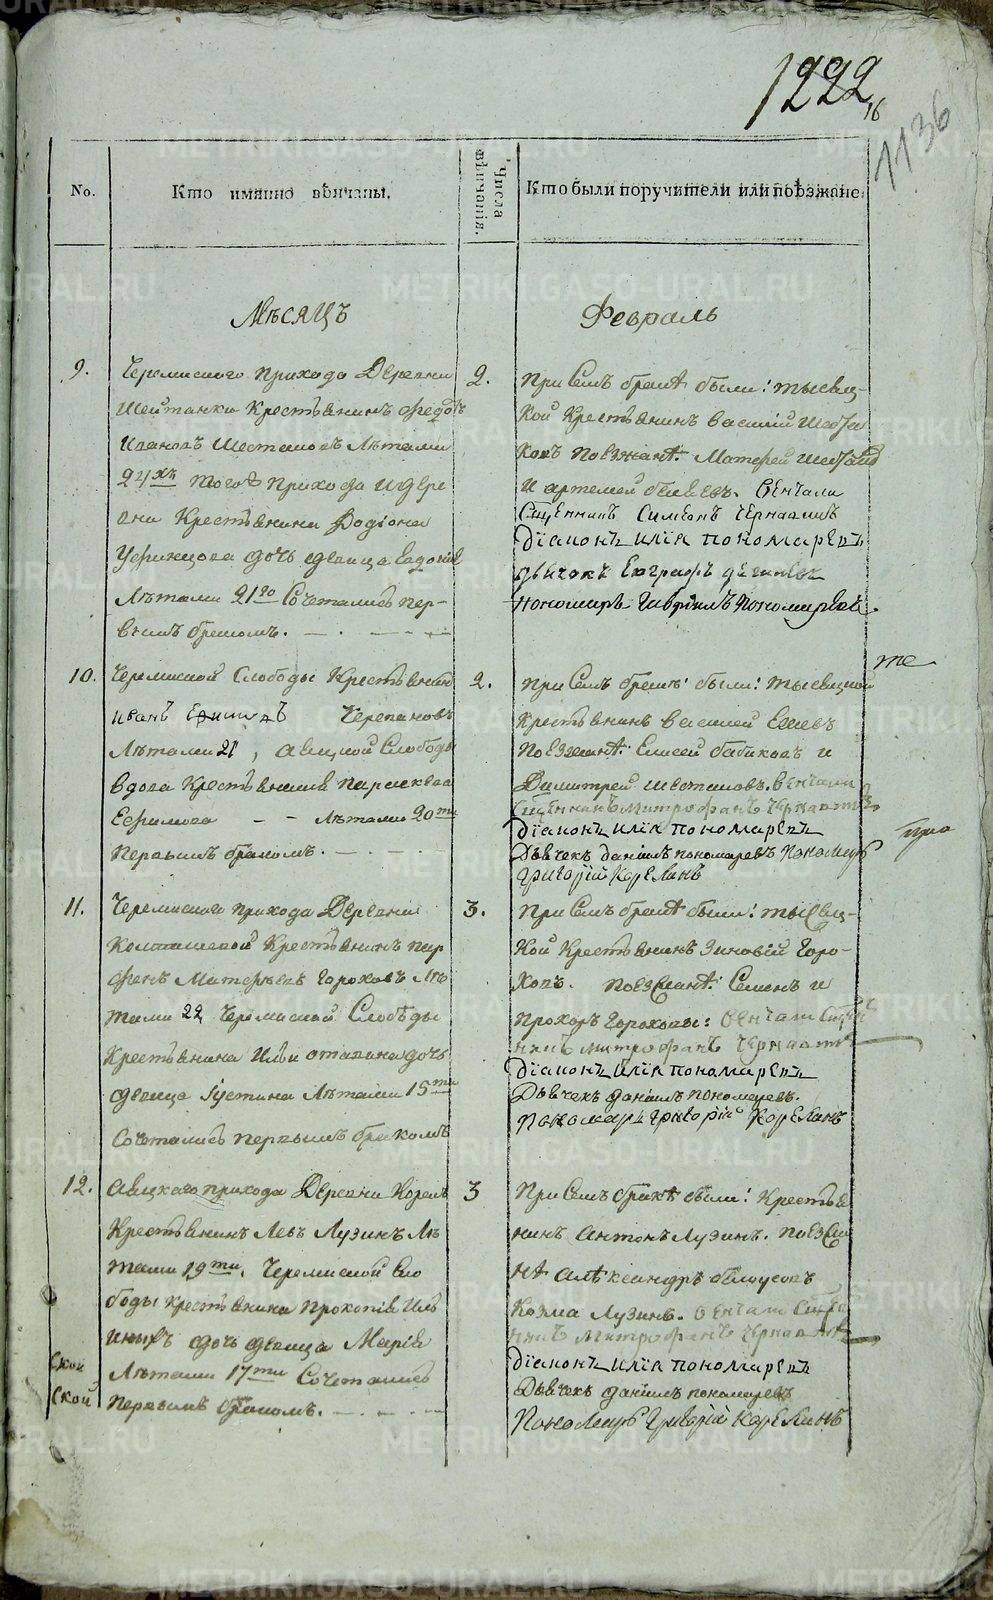 1222
16
1136
No.
Кто имянно вѣнчаны.
Числа вѣнчанія.
Кто были поручители или поѣзжане.
Мѣсяцъ
Февраль
9.
Черемисскаго прихода Деревни
Шейтанки Крестьянинъ Федотъ
Ивановъ Шестаковъ Лѣтами
24хъ того прихода и дере
вни Крестьянина Родіона
дочь девица Евдокія
Лѣтами 21го Сочетались пер-
вымъ бракомъ.
2.
При семъ бракѣ были: тысец-
кой Крестьянинъ василій Шеста
ковъ поезжанѣ: Матфей Шестаков
и артемей Венчали
Священникъ Симеонъ Чернавинъ
Діаконъ илія пономаревъ
дьячокъ Евграфъ
пономарь Гавріилъ Пономаревъ.
10.
Черемисской Слободы Крестьянин
иванъ Черепановъ
Лѣтами 21, Слободы
вдова Крестьянина параскева
Ефимова – – Лѣтами 20ти
первымъ бракомъ.
2.
При семъ бракѣ были: тысецкой
Крестьянинъ василей
поезжанѣ: Елисей бабиковъ и
Димитрей шестаковъ. венчали
Священникъ митрофанъ Чернавинъ
Діаконъ илія пономаревъ
Дьячекъ данилъ пономаревъ Пономарь
григорій Корелинъ
11.
Черемисскаго прихода Деревни
Крестьянинъ пар
фенъ Матфеевъ Гороховъ Лѣ
тами 22 Черемисской Слободы
Крестьянина Ильи дочь
девица Іустина Лѣтами 15ти
Сочетались первымъ бракомъ
3.
При семъ бракѣ были: тысец-
кой Крестьянинъ Зиновій Горо-
ховъ. поезжанѣ: Семенъ и
Прохоръ Гороховы: венчали Священ
никъ митрофанъ Чернавинъ
Діаконъ илія пономаревъ
Дьячекъ данилъ пономаревъ.
Пономарь григорій Корелинъ
12.
прихода Деревни
Крестьянинъ Левъ Лузинъ Лѣ
тами 19ти. Черемисской Сло
боды крестьянина Прокопія Иль
иныхъ дочь девица Марія
Лѣтами 17ти Сочетались
первымъ бракомъ.
3
При семъ бракѣ были: Крестья
нинъ Антонъ Лузинъ. поезжа
нѣ Александръ белоусовъ
Козма Лузинъ. венчали Свяще
никъ Митрофанъ Чернавинъ
Діаконъ илія пономаревъ
Дьячекъ данилъ пономаревъ
Пономарь Григорій Корелинъ
ской
ской
METRIKI.GASO-URAL.RU